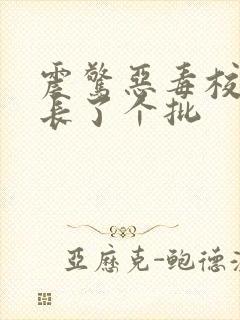 震驚惡毒校
長了个批
亞歷克-鮑德